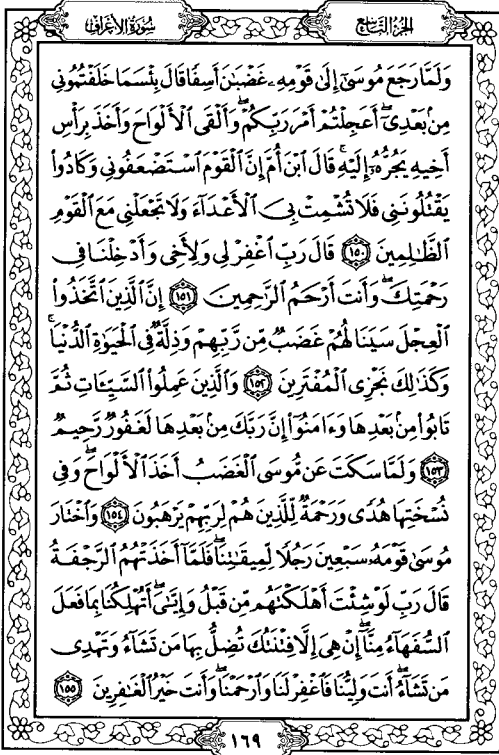 سُورَةُ الأَعْرَافِ
الجُزْءُ التَّاسِعُ
وَلَمَّا رَجَعَ مُوسَىٰٓ إِلَىٰ قَوْمِهِۦ غَضْبَٰنَ أَسِفًا قَالَ بِئْسَمَا خَلَفْتُمُونِى
مِنۢ بَعْدِىٓۖ أَعَجِلْتُمْ أَمْرَ رَبِّكُمْۖ وَأَلْقَى ٱلْأَلْوَاحَ وَأَخَذَ بِرَأْسِ
أَخِيهِ يَجُرُّهُۥٓ إِلَيْهِۚ قَالَ ٱبْنَ أُمَّ إِنَّ ٱلْقَوْمَ ٱسْتَضْعَفُونِى وَكَادُوا۟
يَقْتُلُونَنِى فَلَا تُشْمِتْ بِىَ ٱلْأَعْدَآءَ وَلَا تَجْعَلْنِى مَعَ ٱلْقَوْمِ
ٱلظَّٰلِمِينَ ١٥٠ قَالَ رَبِّ ٱغْفِرْ لِى وَلِأَخِى وَأَدْخِلْنَا فِى
رَحْمَتِكَۖ وَأَنتَ أَرْحَمُ ٱلرَّٰحِمِينَ ١٥١ إِنَّ ٱلَّذِينَ ٱتَّخَذُوا۟
ٱلْعِجْلَ سَيَنَالُهُمْ غَضَبٌ مِّن رَّبِّهِمْ وَذِلَّةٌ فِى ٱلْحَيَوٰةِ ٱلدُّنْيَاۚ
وَكَذَٰلِكَ نَجْزِى ٱلْمُفْتَرِينَ ١٥٢ وَٱلَّذِينَ عَمِلُوا۟ ٱلسَّيِّـَٔاتِ ثُمَّ
تَابُوا۟ مِنۢ بَعْدِهَا وَءَامَنُوٓا۟ إِنَّ رَبَّكَ مِنۢ بَعْدِهَا لَغَفُورٌ رَّحِيمٌ
١٥٣ وَلَمَّا سَكَتَ عَن مُّوسَى ٱلْغَضَبُ أَخَذَ ٱلْأَلْوَاحَۖ وَفِى
نُسْخَتِهَا هُدًى وَرَحْمَةٌ لِّلَّذِينَ هُمْ لِرَبِّهِمْ يَرْهَبُونَ ١٥٤ وَٱخْتَارَ
مُوسَىٰ قَوْمَهُۥ سَبْعِينَ رَجُلًا لِّمِيقَٰتِنَاۖ فَلَمَّآ أَخَذَتْهُمُ ٱلرَّجْفَةُ
قَالَ رَبِّ لَوْ شِئْتَ أَهْلَكْتَهُم مِّن قَبْلُ وَإِيَّٰىَۖ أَتُهْلِكُنَا بِمَا فَعَلَ
ٱلسُّفَهَآءُ مِنَّآۖ إِنْ هِىَ إِلَّا فِتْنَتُكَ تُضِلُّ بِهَا مَن تَشَآءُ وَتَهْدِى
مَن تَشَآءُۖ أَنتَ وَلِيُّنَا فَٱغْفِرْ لَنَا وَٱرْحَمْنَاۖ وَأَنتَ خَيْرُ ٱلْغَٰفِرِينَ ١٥٥
١٦٩